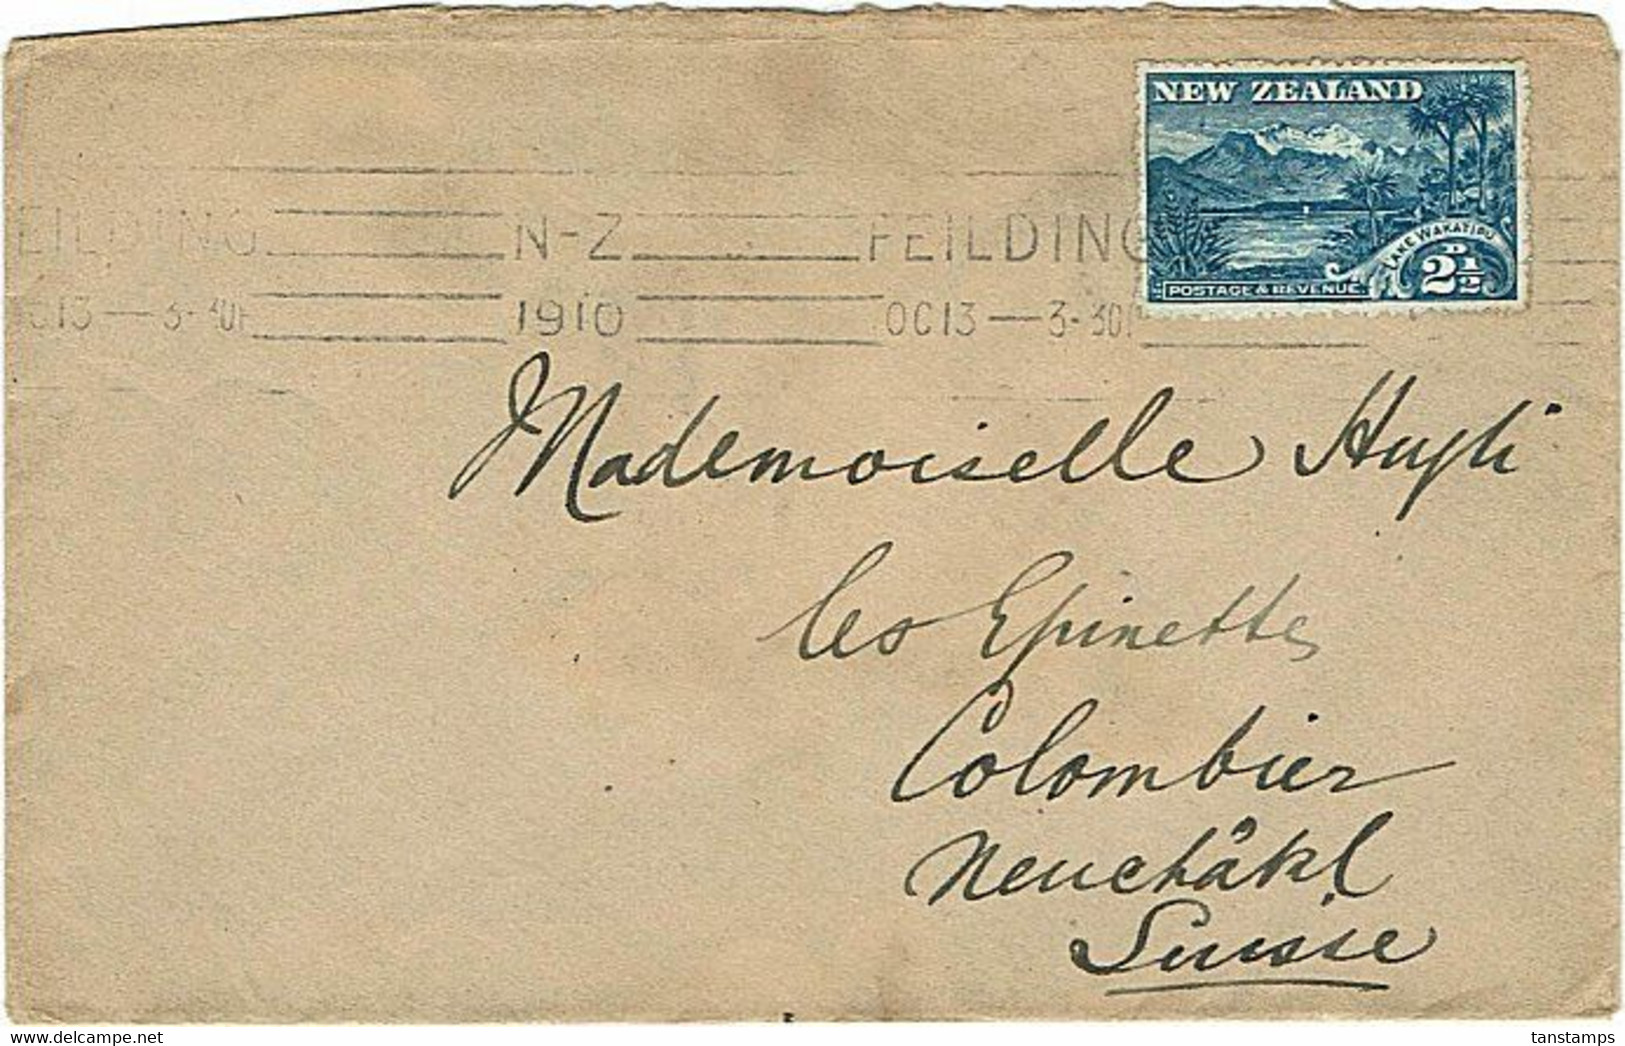 NEW ZEALAND
LAKE WAKATIPU
POSTAGE & REVENUE
2½D
EILDING N-Z FEILDING
OC13—3-30P 1910 OC13—3-30P
Mademoiselle Hugli
les Epinettes
Colombier
Neuchâtel
Suisse
tanstamps